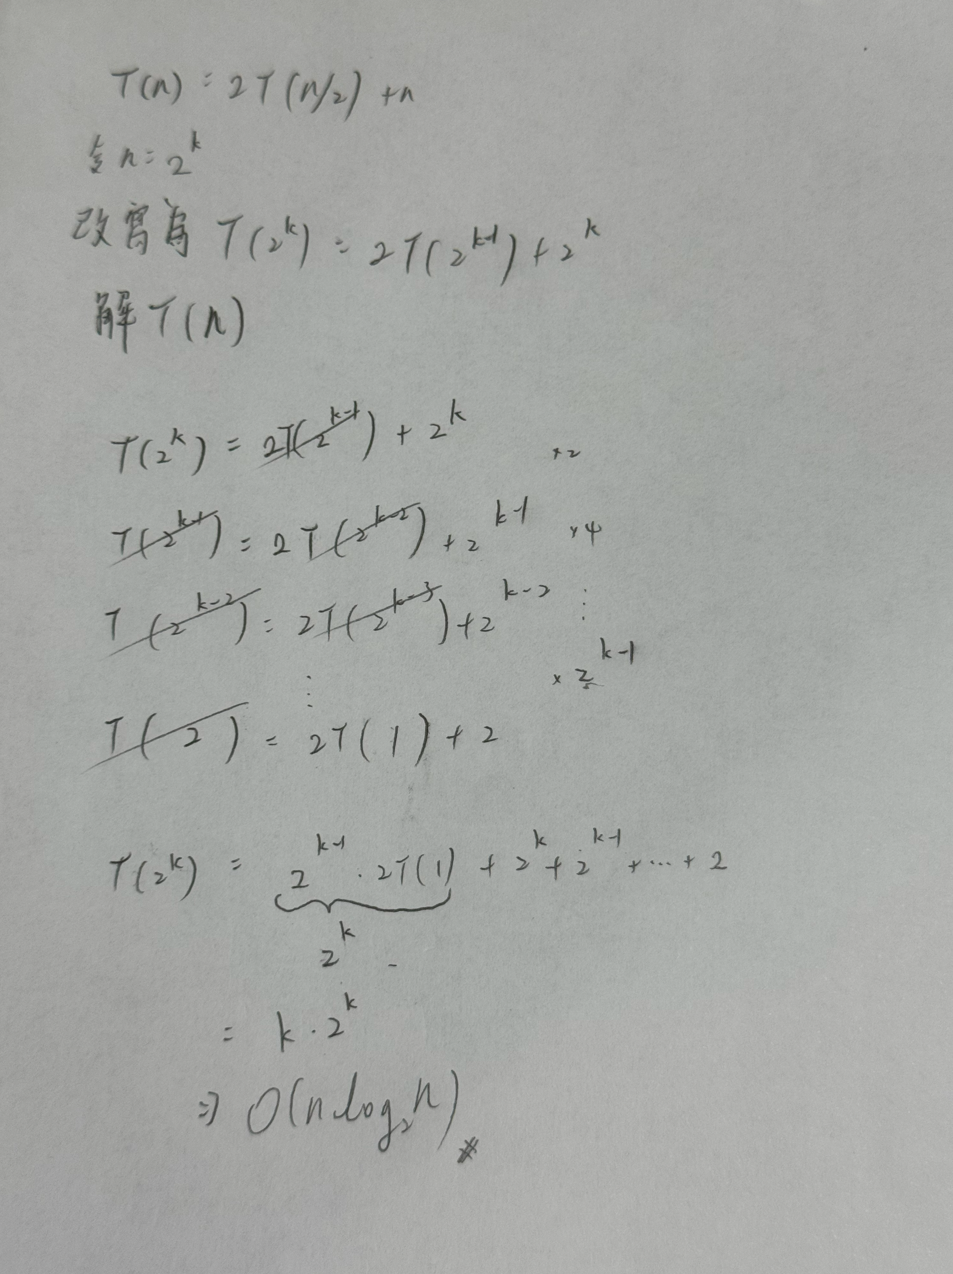 T(n) = 2T(n/2) + n
令 n = 2^k
改寫為 T(2^k) = 2T(2^{k-1}) + 2^k
解 T(n)
T(2^k) = 2T(2^{k-1}) + 2^k
×2
T(2^{k-1}) = 2T(2^{k-2}) + 2^{k-1} ×4
T(2^{k-2}) = 2T(2^{k-3}) + 2^{k-2} ⋮
⋮ ×2^{k-1}
T(2) = 2T(1) + 2
T(2^k) = 2^{k-1} · 2T(1) + 2^k + 2^{k-1} + ⋯ + 2
2^k
= k · 2^k
⇒ O(n log₂ n) #